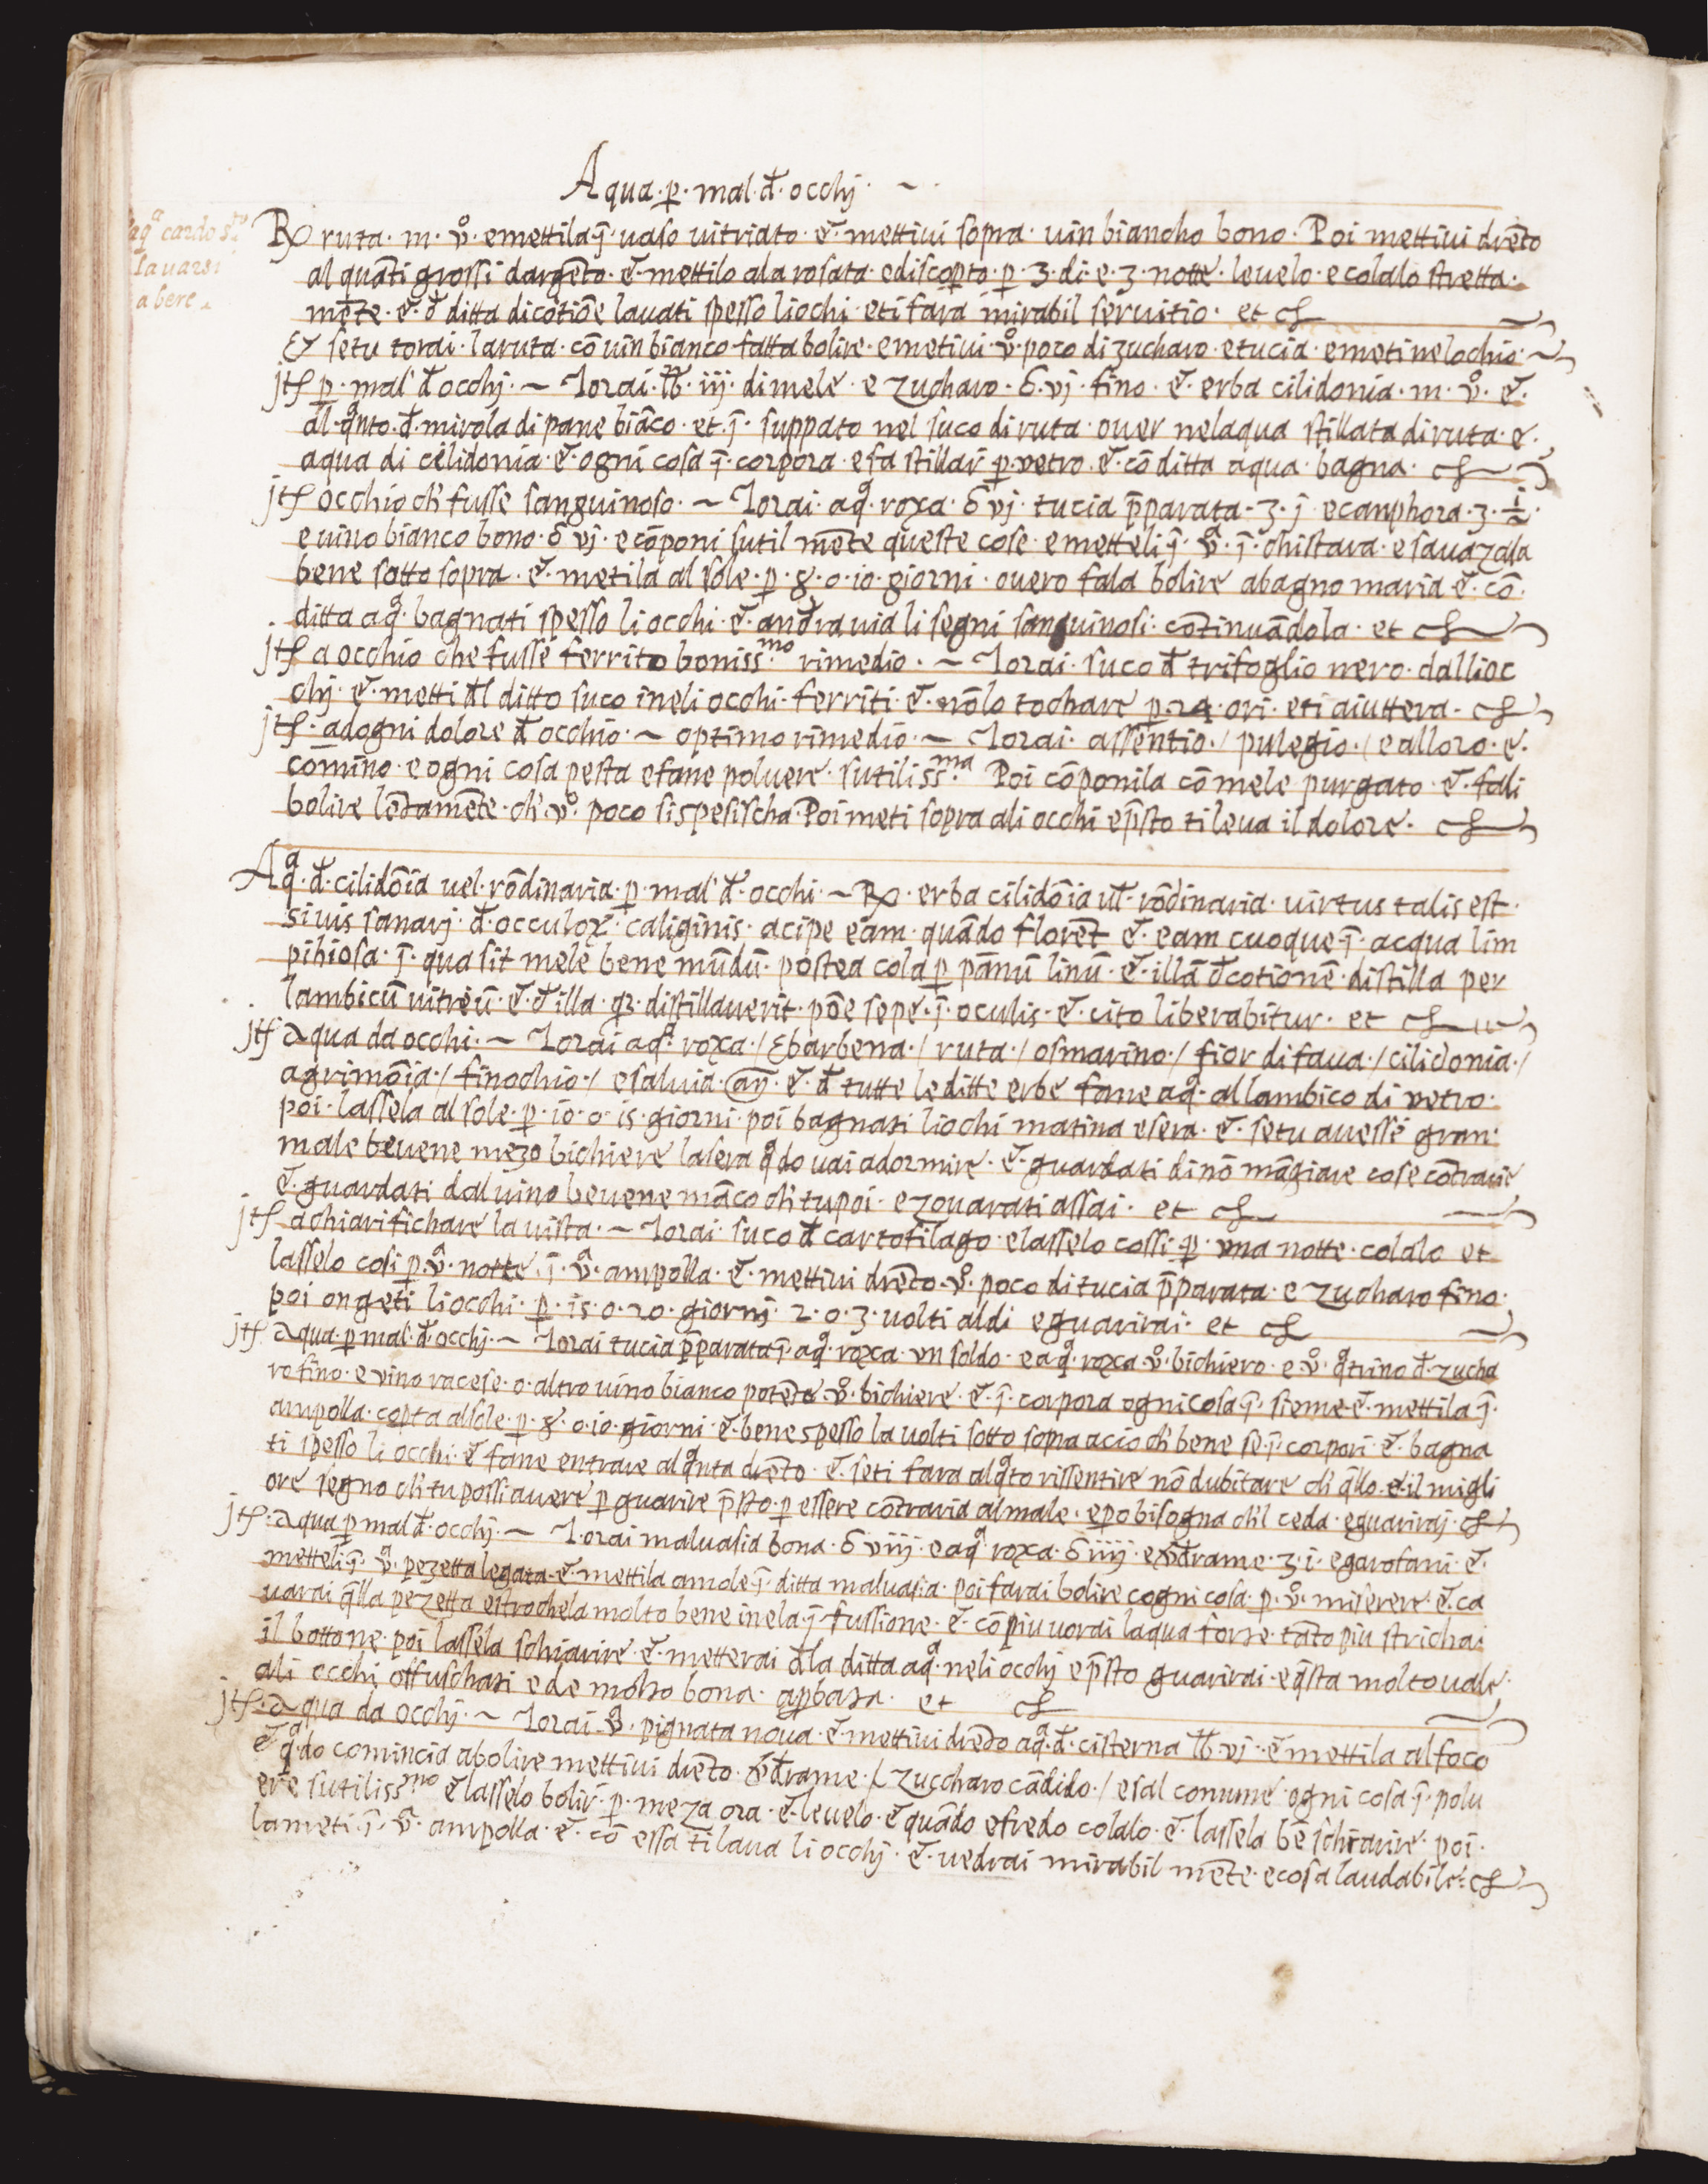 Aqua · p̱ · mal · đ · occhj · ~ ·
aqͣ cardo s.ᵗᵒ
lavarsi
a bere
℞ ruta · m · v̊ · emettila ȷ̄ · uaso uitriato · e͂ · mettiui sopra · uin biancho bono · Poi mettiui drēto
al quāti grossi dargēto · e͂ · mettilo ala rosata · ediscop̱to · p̱ · 3 · di · e · 3 · notte · leuelo · e colalo stretta ·
mēte · e͂ · đ ditta dicōtiōe lauati spesso liochi · eti fara mirabil seruitio · et
Et setu torai · laruta · cō uin bianco fatta bolire · emetiui · v̊ · poco di zucharo · etucia · emeti nelochio · ~
jtẜ p̱ · mal đ occhj · ~ Torai · ℔ · iij · di mele · e zucharo · δ · vj · fino · e͂ · erba cilidonia · m · v̊ · e͂ ·
al · qͣnto · đ · mirola di pane biāco · et · ȷ̄ · suppato nel suco di ruta · ouer nelaqua stillata di ruta · e ·
aqua di cilidonia · e͂ · ogni cosa ȷ̄ · corpora · e fa stillar̄ p̱ · vetro · e͂ · cō ditta aqua · bagna ·
jtẜ occhio ch' fusse sanguinoso · ~ Torai · aqͣ · roxa · δ vj · tucia p̄parata · ʒ · j · ecanphora · ʒ · ½ ·
e uino bianco bono · δ vj · e cōponi sutil mēte queste cose · emetteli ȷ̄ · v̊ · ȷ̄ · ghistara · e sauazala
bene sotto sopra · e͂ · metila al sole · p̱ · 8 · o · io · giorni · ouero fala bolire abagno maria · e͂ · cō ·
ditta aqͣ · bagnati spesso li occhi · e͂ · andra uia li segni sanguinosi · cōtinuādola · et
jtẜ a occhio che fusse ferrito boniss.ᵐᵒ rimedio · ~ Torai · suco đ trifoglio nero · dallioc
chj · e͂ · metti đl ditto suco ineli occhi · ferriti · e͂ · nō lo tochare p̱ · 24 · ori · eti aiuttera ·
jtẜ · adogni dolore đ occhio · ~ optimo rimedio · ~ Torai · assentio · / pulegio · / e alloro · e ·
comino · e ogni cosa pesta e fane poluere · sutiliss.ᵐᵃ Poi cōponila cō mele purgato · e͂ · fali
bolire lētamēte · ch' · v̊ · poco si spesischa · Poi meti sopra ali occhi e p̄sto ti leua il dolore ·
Aqͣ · đ · cilidōia uel · rōdinaria · p̱ · mal đ · occhi · ~ ℞ · erba cilidōia ul̄ · rōdinaria · uirtus talis est ·
si uis sanarj · đ · occuloꝝ · caliginis · acipe eam · quādo florēt e͂ · eam cuoque · ȷ̄ · acqua lim
pihiosa · ȷ̄ · qua sit mele bene mūdū · postea cola p̱ pānū linū · e͂ · illā đcotionē · distilla per
lambicū uitreū · e͂ · đ illa · qꝫ · distillauerit · pōe sepe · ȷ̄ · oculis · e͂ · cito liberabitur · et
jtẜ aqua da occhi · ~ Torai aqͣ · roxa · / Ebarbena · / ruta · / osmarino · / fior di faua · / cilidonia · /
agrimōia · / finochio · / e saluia · añ · e͂ · đ tutte le ditte erbe fane aqͣ · al lambico di vetro ·
poi · lassela al sole · p̱ · io · o · is · giorni · poi bagnati liochi matina esera · e͂ · setu auesse gran ·
male beuene mezo bichiere lasera qͣdo uai adormire · e͂ · guardati di nō māgiare cose cōtrarie
e͂ · guardati dal uino beuene māco ch' tu poi · e zouarati assai · et
jtẜ achiarifichare la uista · ~ Torai · suco đ cartofilago · elasselo cossi · p̱ · una notte · colalo et
lasselo cosi p̱ · v̊ · notte · ȷ̄ · v̊ · ampolla · e͂ · mettiui drēto · v̊ · poco di tucia p̄parata · e zucharo fino ·
poi ongeti liocchi · p̱ · is · o · 20 · giornj · 2 · o · 3 · uolti aldi eguarirai · et
jtẜ aqua · p̱ mal · đ · occhj · ~ Torai tucia p̄parata ȷ̄ · aqͣ · roxa · un soldo · e aqͣ · roxa · v̊ · bichiero · e v̊ · qͣtrino đ · zucha
ro fino · e vino racese · o · altro uino bianco potēte · v̊ · bichiere · e͂ · ȷ̄ · corpora ogni cosa ȷ̄ · sieme · e͂ · mettila ȷ̄ ·
ampolla · cop̱ta alsole · p̱ · 8 · o · io · giorni · e͂ · bene spesso la uolti sotto sopra acio ch' bene se · ȷ̄ · corpori · e͂ · bagna
ti spesso li occhi · e͂ fane entrare al qͣnta drēto · e͂ · seti fara alqͣto rissentire nō dubitare ch' q̄llo · e͂ · il migli
ore segno ch' tu possi auere p̱ guarire p̄sto · p̱ essere cōtraria al male · e p̱o bisogna ch'l ceda · eguarirai ·
jtẜ · aqua p̱ mal đ · occhj · ~ Torai maluasia bona · δ viij · e aqͣ roxa · δ iiij · e v̊đrame · ʒ · i · e garofani · e͂ ·
metteli ȷ̄ · v̊ · pezetta legata · e͂ · mettila amole ȷ̄ · ditta maluasia · poi farai bolire cogni cosa · p̱ · v̊ · miserere · e͂ · ca
uarai q̄lla pezetta e strochela molto bene inela · ȷ̄ · fussione · e͂ · cō piu uorai laqua forte · tāto piu strichai
il bottone · poi lassela schiarire · e͂ · metterai đla ditta aqͣ · neli occhj e p̄sto guarirai · e q̄sta molto uale ·
ali occhi offuschati ede molto bona · ap̱bata · et
jtẜ · aqua da occhj · ~ Torai · v̊ · pignata noua · e͂ · mettiui drēto aqͣ · đ · cisterna ℔ · vj · e͂ mettila al foco
e͂ qͣ · do comincia abolire mettiui drēto · v̊đrame · / zuccharo cādido · / e sal comune · ogni cosa ȷ̄ · polu
ere sutiliss.ᵐᵒ e͂ lasselo bolir̄ · p̱ · meza ora · e͂ · leuelo · e͂ quādo efredo colalo · e͂ · lassela bē schiarire · poi ·
la meti · ȷ̄ · v̊ · ampolla · e͂ · cō essa ti laua li occhj · e͂ · uedrai mirabil mēte · e cosa laudabile ·